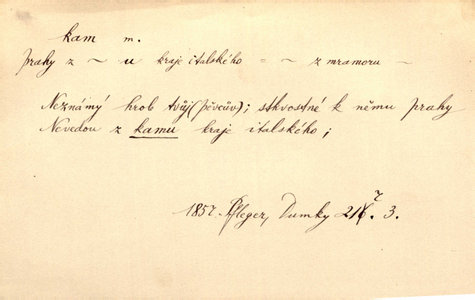 kam m.
prahy z ~ u kraje italského = ~ z mramoru -
Neznámý hrob tvůj (pěvcův); skvostné k němu prahy
Nevedou z kamu kraje italského;
1857. Pfleger, Dumky 217. 3.